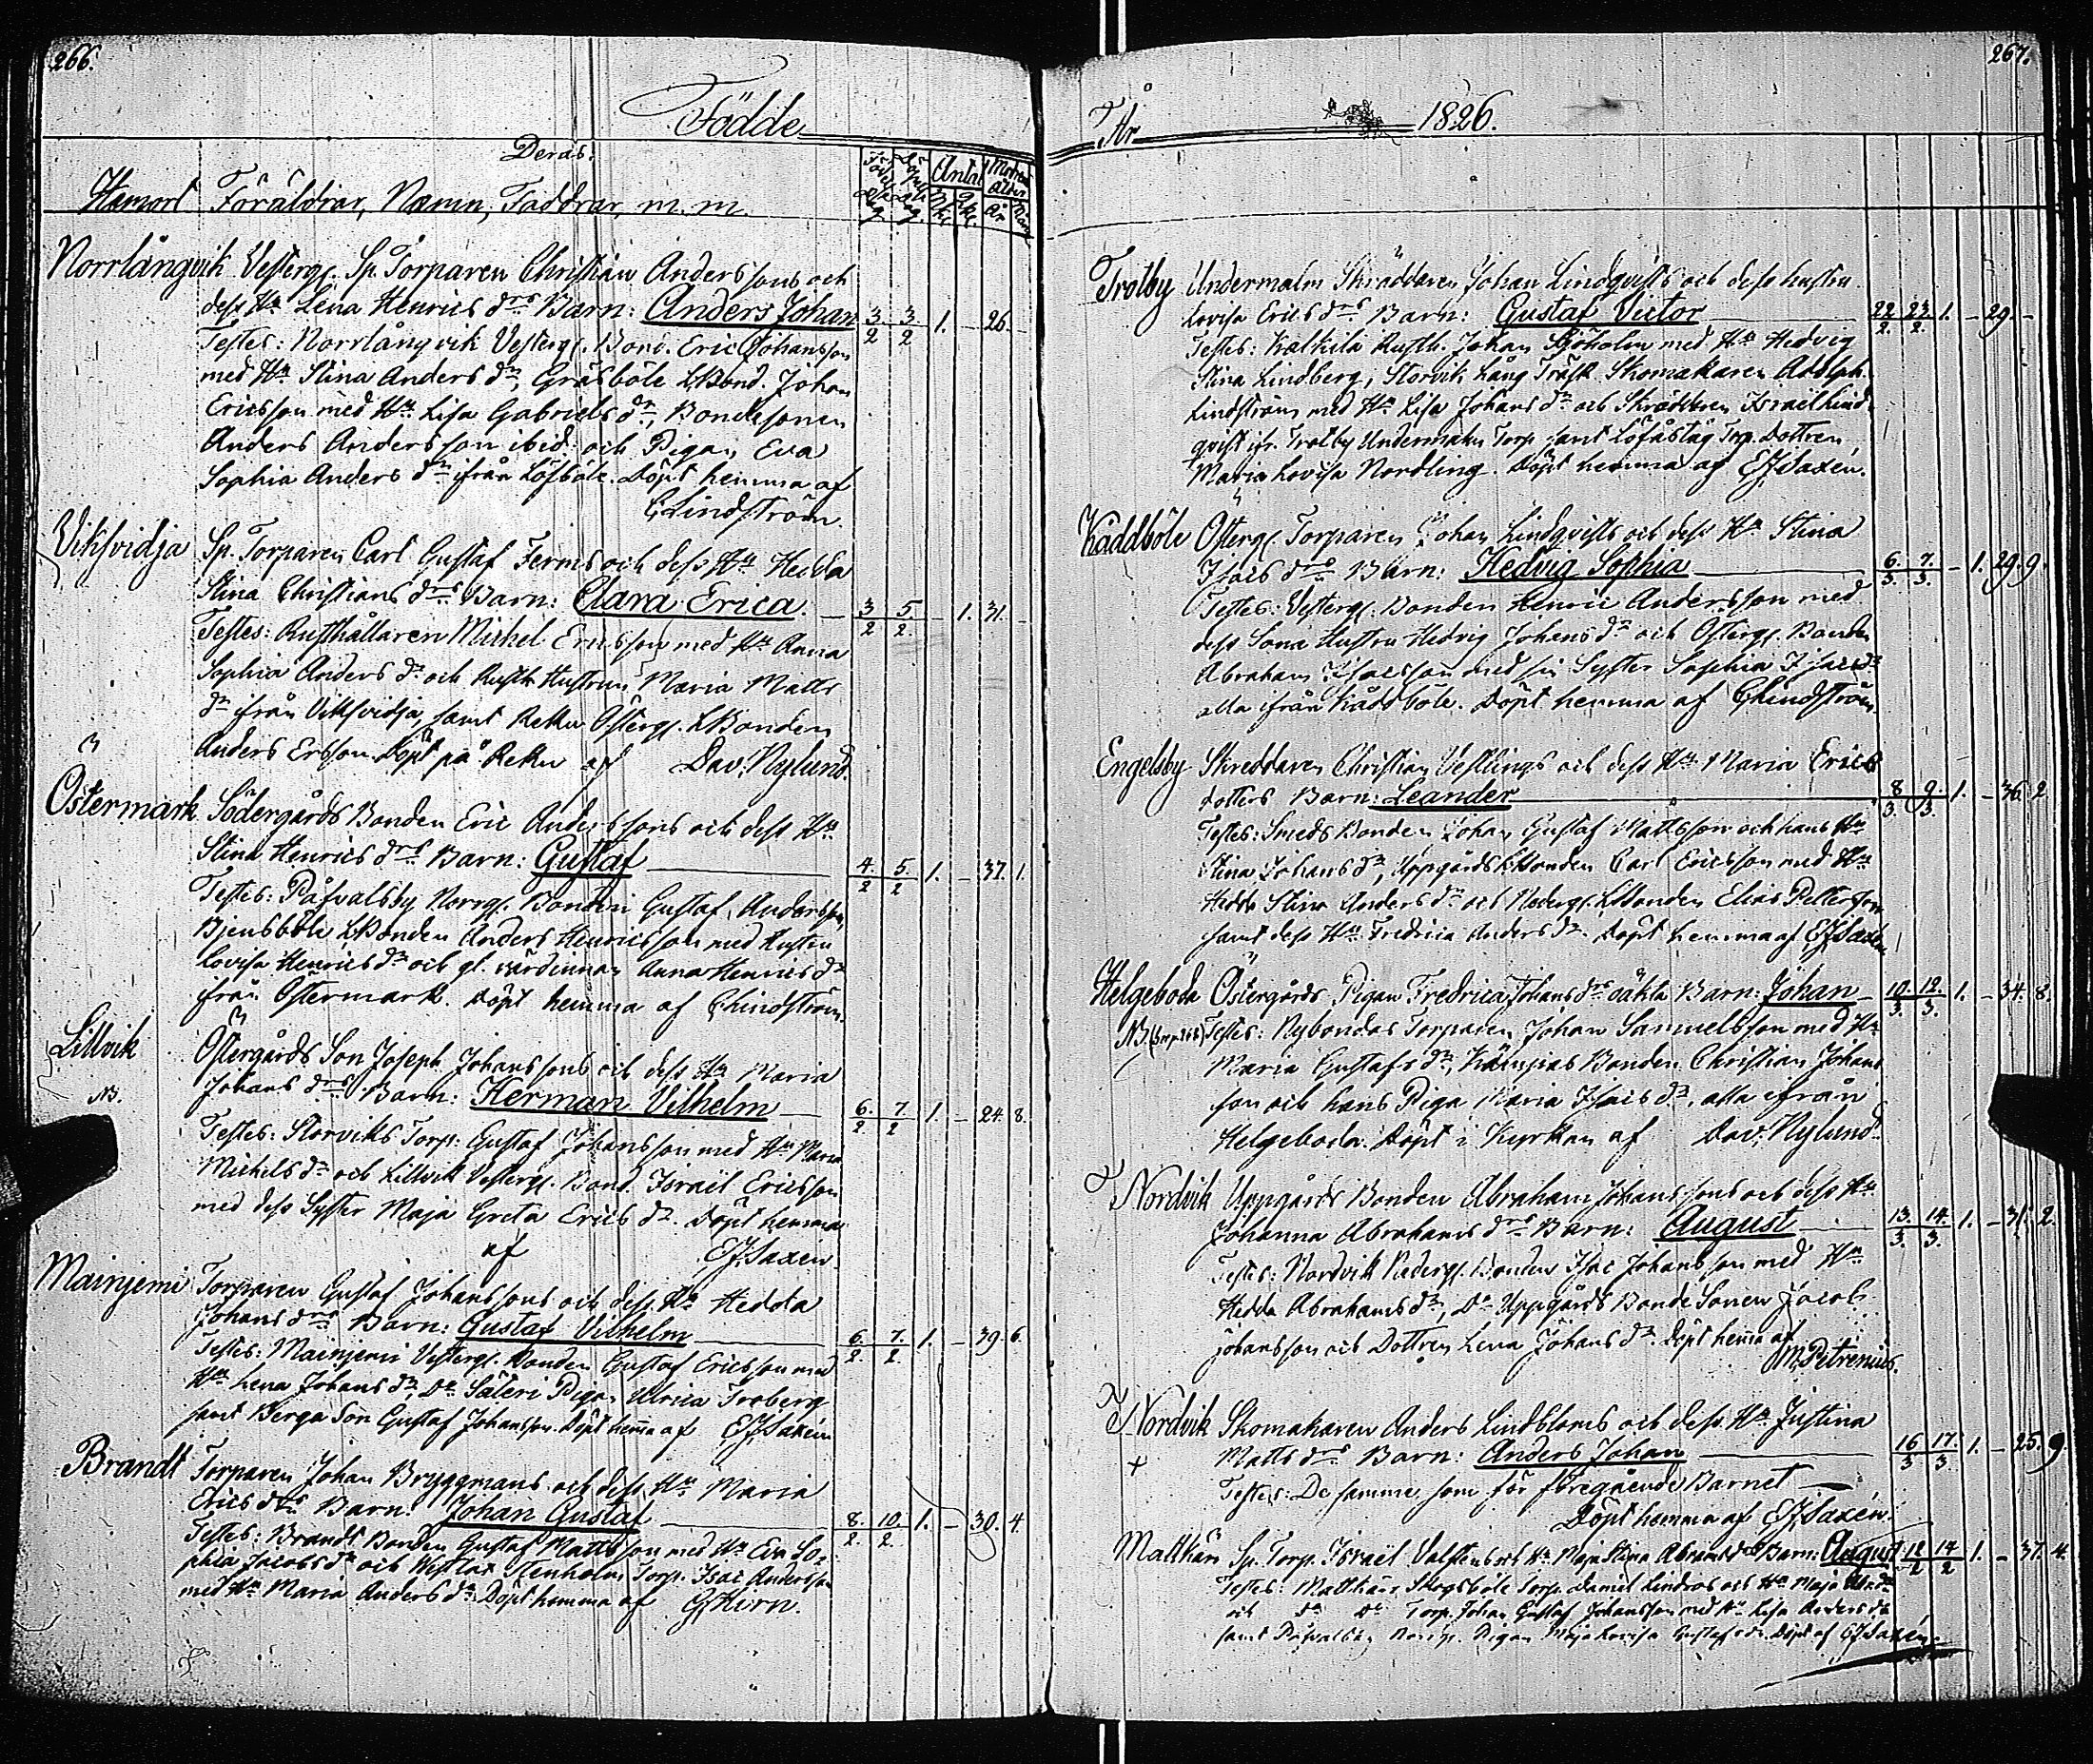 266.
Födde
Deras.
Hemort Föräldrar, Namn, Faddrar, m. m. Födelse Dag Döpelse Dag Antal Mk. Qk. Modrens Ålder År
Norrlångvik Vesterg. Sp. Torparen Christian Anderssons och
dess Hu Lena Henrics drs Barn: Anders Johan 3/2 3/2 1. 26. –
Testes: Norrlångvik Vesterg. Bond. Eric Johansson
med Hu Stina Anders dr, Gräsböle LBond. Johan
Ericsson med Hu Lisa Gabriels dr, Bondesonen
Anders Andersson ibid: och Pigan Eva
Sophia Anders dr ifrån Löfböle. Döpt hemma af
C Lindström.
Viksvidja Sp. Torparen Carl Gustaf Ferms och dess Hu Hedda
Stina Christians drs Barn: Clara Erica. – 3/2 5/2 – 1. 31. –
Testes: Rusthållaren Michel Ericsson med Hu Anna
Sophia Anders dr och Rusth. Hustrun Maria Matts
dr ifrån Viksvidja, samt Reku Österg. LBonden
Anders Ersson. Döpt på Reku af Dav. Nylund.
Östermark Södergårds Bonden Eric Anderssons och dess Hu
Stina Henrics drs Barn: Gustaf 4/2 5/2 1. – 37. 1.
Testes: Påfvalsby Norrg. Bonden Gustaf Andersson,
Bjensböle LBonden Anders Henricsson med Hustru
Lovisa Henrics dr och gl. värdinnan Anna Henrics dr
ifrån Östermark. Döpt hemma af C Lindström.
Lillvik Östergårds Son Joseph Johanssons och dess Hu Maria
NB. Johans drs Barn: Herman Vilhelm – 6/2 7/2 1. – 24. 8.
Testes: Storviks Torp: Gustaf Johansson med Hu Maria
Michels dr och Lillvik Vesterg. Bond. Israel Ericsson
med dess Syster Maja Greta Erics dr. Döpt hemma
af EJ Saxén.
Mainjemi Torparen Gustaf Johanssons och dess Hu Hedda
Johans drs Barn: Gustaf Vilhelm 6/2 7/2 1. – 39. 6.
Testes: Mainjemi Vesterg. Bonden Gustaf Ericsson med
Hu Lena Johans dr, Do Säteri Pigan Ulrica Troberg
samt Berga Son Gustaf Johansson. Döpt hema af EJ Saxén
Brandt Torparen Johan Bryggmans och dess Hu Maria
Erics drs Barn: Johan Gustaf 8/2 10/2 1. – 30. 4.
Testes: Brandt Bonden Gustaf Mattsson med Hu Eva So-
phia Jacobs dr och Westlax Stenholm Torp. Isac Andersson
med Hu Maria Anders dr. Döpt hemma af
267.
År 1826.
Trotby Undermalm Skräddaren Johan Lindqvists och dess hustru
Lovisa Erics drs Barn: Gustaf Victor 22/2 23/2 1. – 29. –
Testes: Kalkila Rusth. Johan Sjöholm med Hu Hedvig
Stina Lindberg, Storvik Lång Träsk Skomakaren Adolph
Lindström med Hu Lisa Johans dr och Skräddaren Israel Lind-
qvist ifr. Trotby Undermalm Torp samt Löfåstäg Torp. Dottren
Maria Lovisa Nordling. Döpt hemma af EJ Saxén.
Kåddböle Österg. Torparen Johan Lindqvists och dess Hu Stina
Isacs drs Barn: Hedvig Sophia 6/3. 7/3. – 1. 29. 9.
Testes: Vesterg. Bonden Henric Andersson med
dess Sona Hustru Hedvig Johans dr och Österg. Bonden
Abraham Isacsson med sin Syster Sophia Isacs dr
alla ifrån Kåddböle. Döpt hemma af C Lindström
Engelsby Skreddaren Christian Vestlings och dess Hu Maria Erics
dotters Barn: Leander 8/3. 9/3. 1. – 36. 2
Testes: Smeds Bonden Johan Gustaf Mattsson och hans Hu
Stina Johans dr, Uppgårds LBonden Carl Ericsson med Hu
Hedda Stina Anders dr och Nederg. LBonden Elias Pettersson
samt dess Hu Fredrica Anders dr. Döpt hemma af EJ Saxén
Helgeboda Östergårds Pigan Fredrica Johans drs oäkta Barn: Johan – 10/3. 12/3. 1. – 34. 8.
NB. Testes: Nybondas Torparen Johan Samuelsson med Hu
Maria Gustafs dr, Bonden Christian Johans
son och hans Piga Maria Isacs dr, alla ifrån
Helgeboda. Döpt i Kyrkan af Dav. Nylund.
Nordvik Uppgårds Bonden Abraham Johanssons och dess Hu
Johanna Abrahams drs Barn: August 13/3. 14/3. 1. – 31. 2.
Testes: Nordvik Nederg. Bonden Isac Johansson med Hu
Hedda Abrahams dr, Do Uppgårds Bonde Sonen Jacob
Johansson och Dottren Lena Johans dr. Döpt hema af
JM Petrenius.
Nordvik Skomakaren Anders Lindbloms och dess Hu Justina
+ Matts drs Barn: Anders Johan 16/3 17/3. 1. – 25. 9.
Testes: De samme som för föregående Barnet –
Döpt hemma af EJ Saxén.
Matkärr Sp. Torp. Israel Valstens och Hu Maja Stina Abrams drs Barn: August 12/2 14/2 1. – 37. 4.
Testes: Matkärr Skogsböle Torp. Daniel Lindros och Hu Maja
och do Do Torp. Johan Gustaf Johansson med Hu Lisa Anders dr
samt Påfvalsby Norrg. Pigan Maja Lovisa Gustafs dr. Döpt af EJ Saxén.